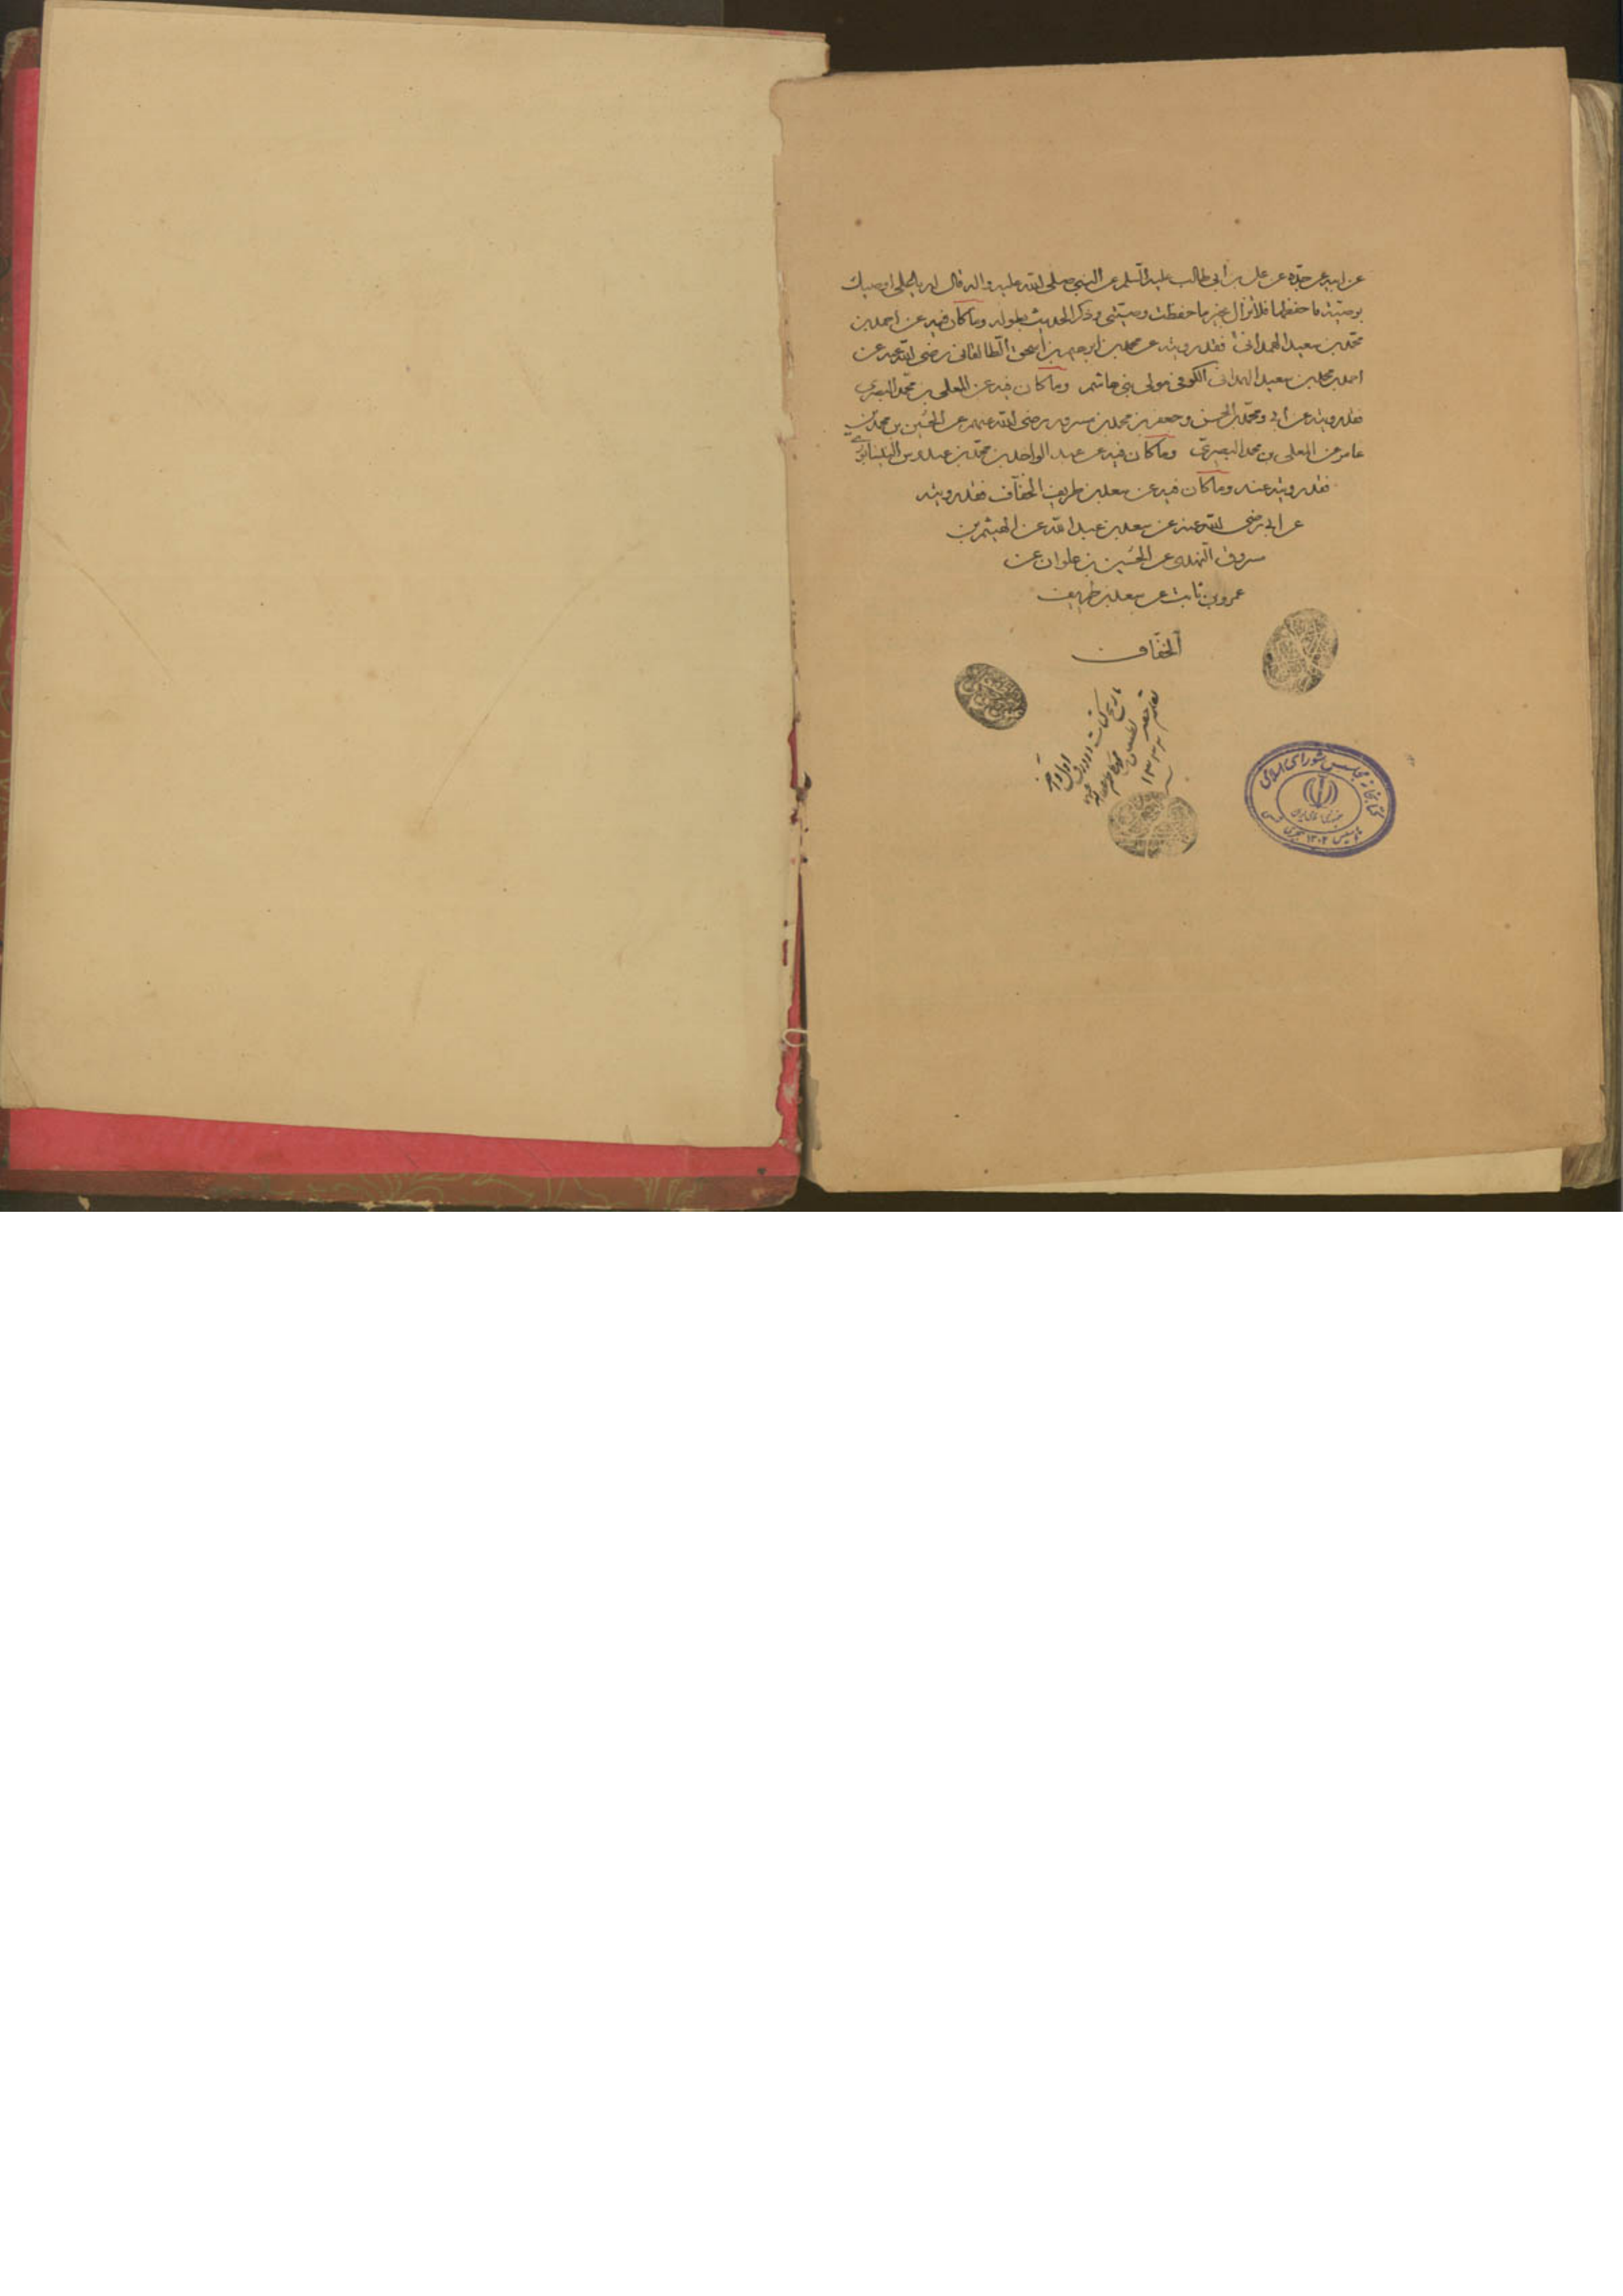 عن ابيه عن جدّه عن علي بن أبي طالب عليه السّلم عن النبي صلى الله عليه واله قال له يا علي اوصيك
بوصيّة فاحفظها فلا تزال بخير ما حفظت وصيّتي وذكر الحديث بطوله وما كان فيه عن احمد بن
محمّد بن سعيد الهمداني فقد رويته عن محمد بن ابرهيم بن اسحق الطالقاني رضى الله عنه عن
احمد بن محمد بن سعيد الهمداني الكوفي مولى بني هاشم وما كان فيه عن المعلى بن محمّد البصري
فقد رويته عن ابي ومحمّد بن الحسن وجعفر بن محمد بن مسرور رضى الله عنهم عن الحسين بن محمد بن
عامر عن المعلى بن محمد البصريّ وما كان فيه عن عبد الواحد بن محمّد بن عبدوس النيسابوري
فقد رويته عنه وما كان فيه عن سعد بن طريف الخفّاف فقد رويته
عن ابي رضى الله عنه عن سعد بن عبد الله عن الهيثم بن
مسروق النهدى عن الحسين بن علوان عن
عمرو بن ثابت عن سعد بن طريف
الخفّاف
تاريخ كتابت اوراق
اول و آخر
١٣٣٢
كتابخانه مجلس شوراى اسلامى
جمهورى اسلامى ايران
تأسيس ١٣٠٢ هجرى شمسى